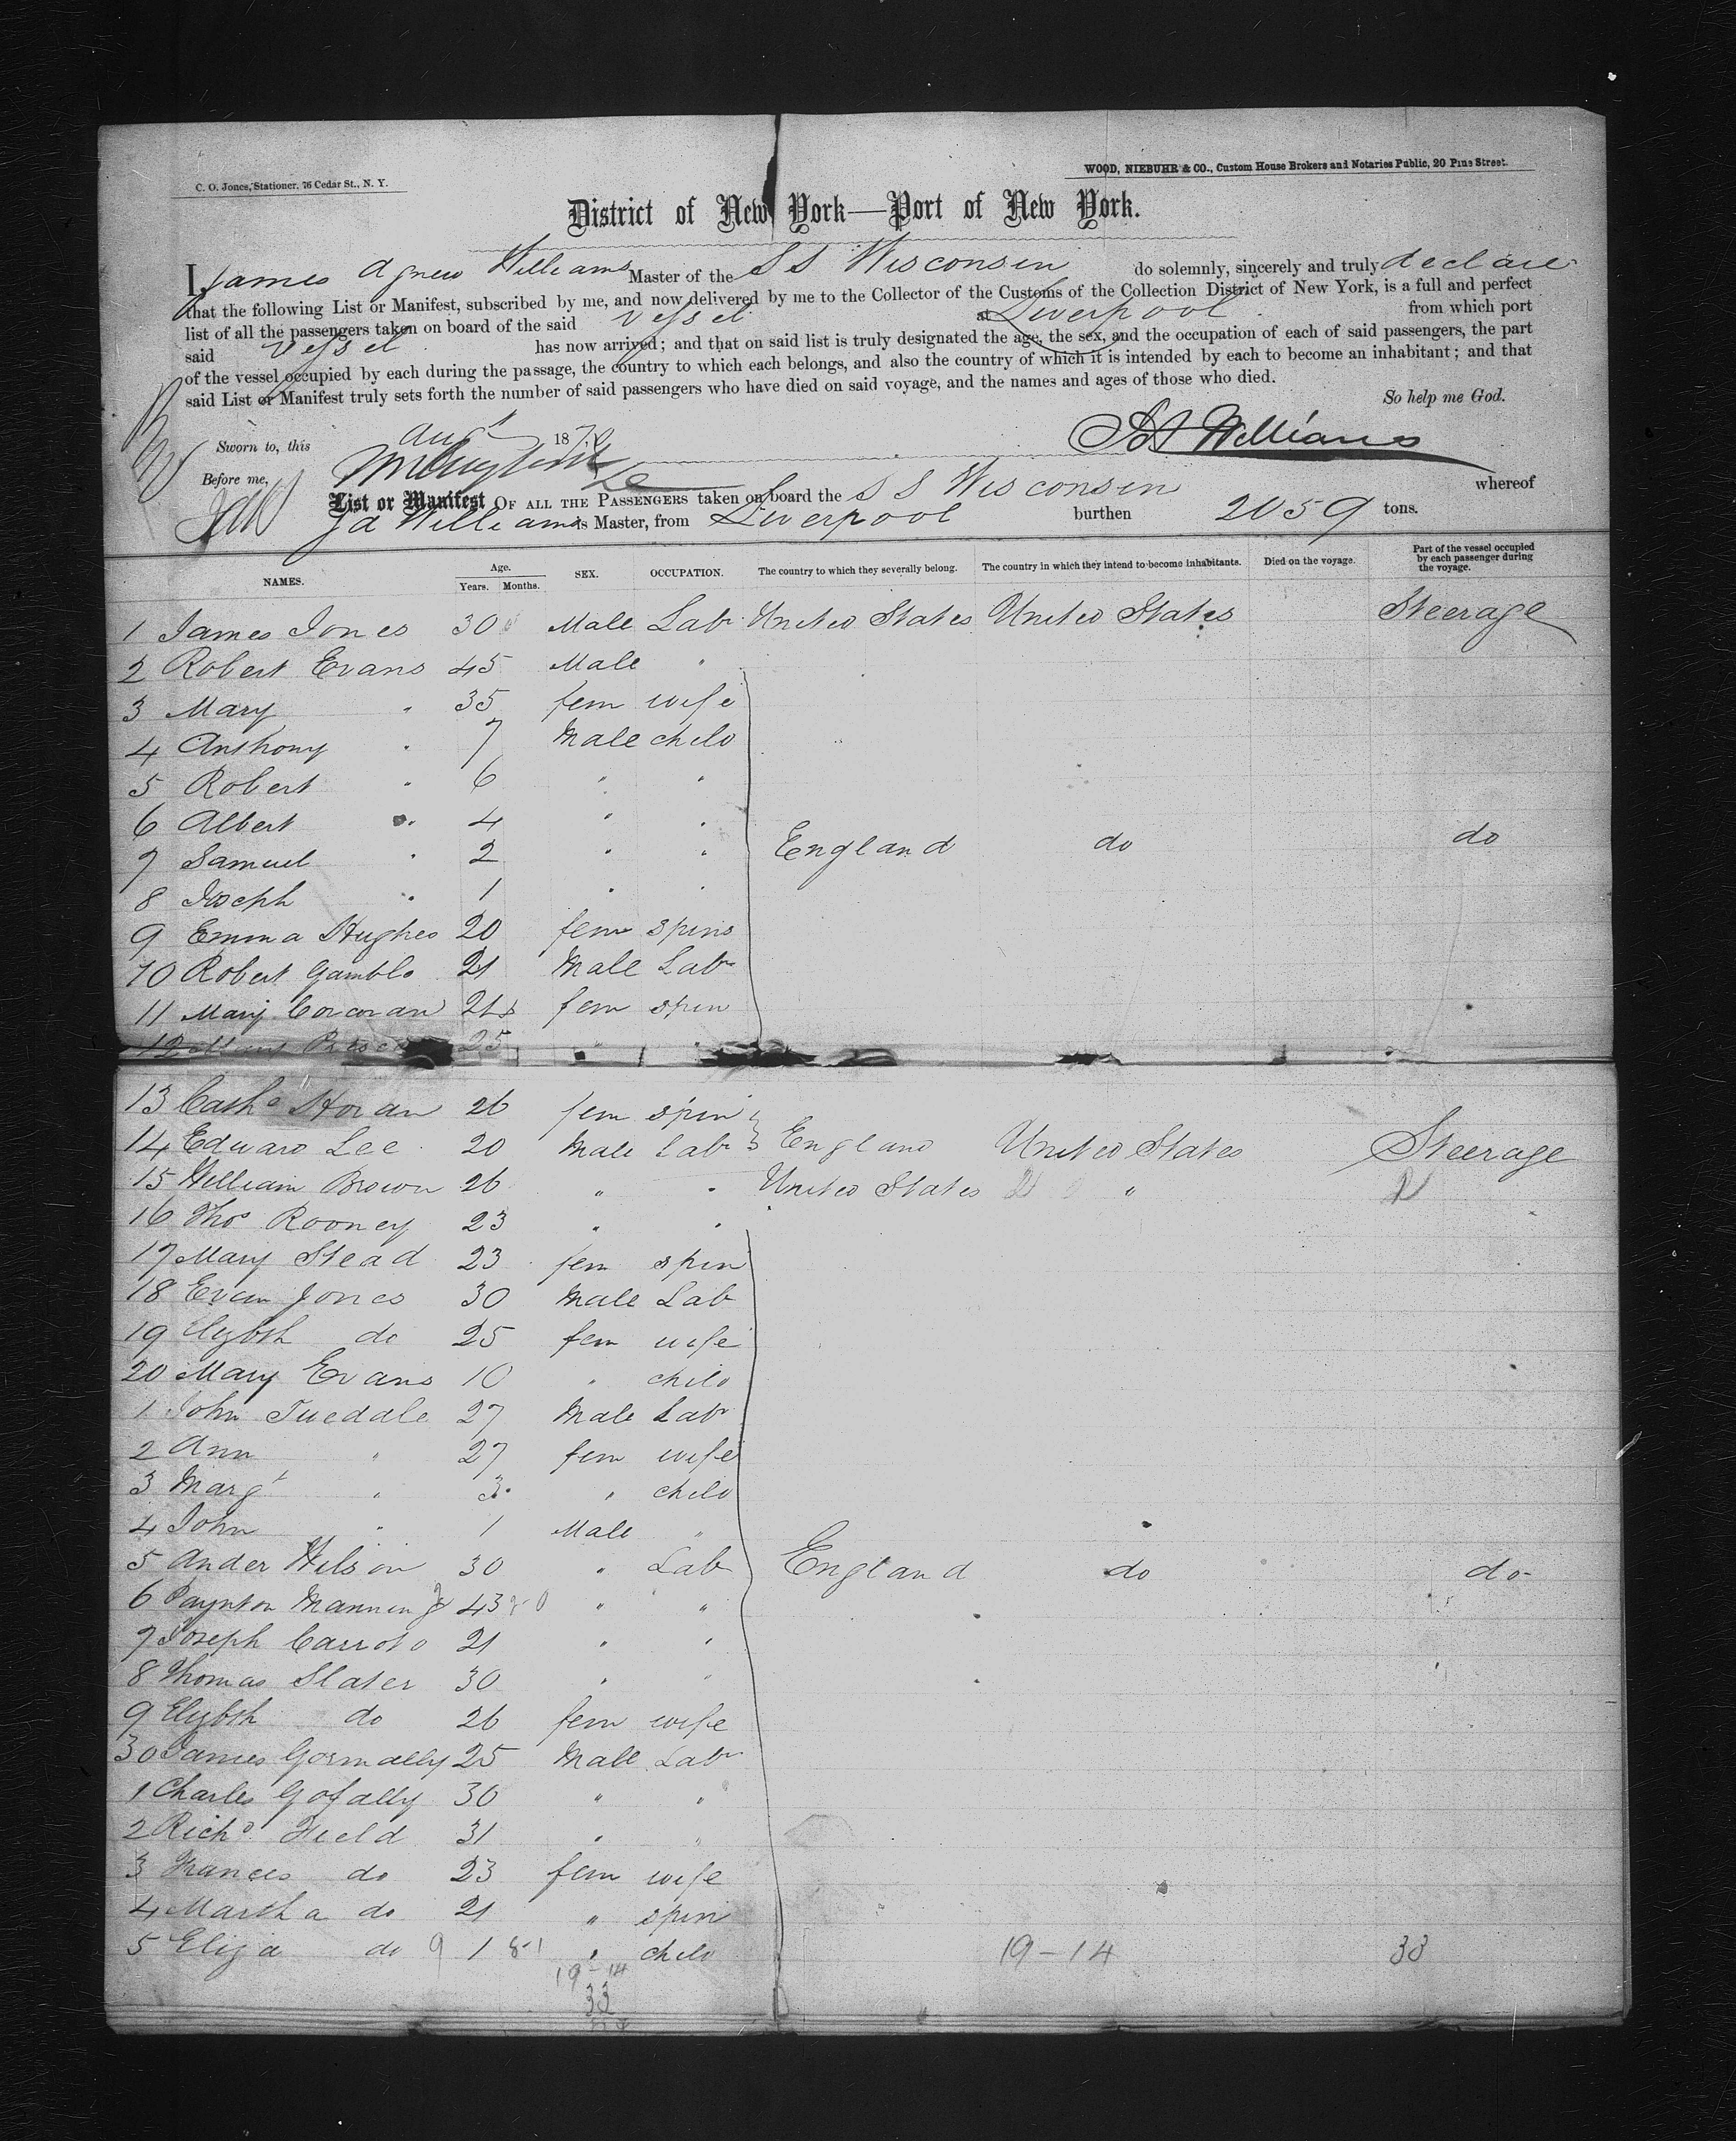 C. O. Jones, Stationer, 76 Cedar St., N. Y.
WOOD, NIEBUHR & CO., Custom House Brokers and Notaries Public, 20 Pine Street.
District of New York—Port of New York.
I, James Agnew Williams Master of the S S Wisconsin do solemnly, sincerely and truly declare
that the following List or Manifest, subscribed by me, and now delivered by me to the Collector of the Customs of the Collection District of New York, is a full and perfect
list of all the passengers taken on board of the said vessel at Liverpool from which port
said vessel has now arrived; and that on said list is truly designated the age, the sex, and the occupation of each of said passengers, the part
of the vessel occupied by each during the passage, the country to which each belongs, and also the country of which it is intended by each to become an inhabitant; and that
said List or Manifest truly sets forth the number of said passengers who have died on said voyage, and the names and ages of those who died.
So help me God.
Sworn to, this Aug 187
Williams
Before me,
List or Manifest OF ALL THE PASSENGERS taken on board the S S Wisconsin whereof
J A Williams is Master, from Liverpool burthen 2059 tons.
NAMES. Age. Years. Months. SEX. OCCUPATION. The country to which they severally belong. The country in which they intend to become inhabitants. Died on the voyage. Part of the vessel occupied by each passenger during the voyage.
1 James Jones 30 Male Lab United States United States Steerage
2 Robert Evans 45 Male "
3 Mary " 35 fem wife
4 Anthony " 7 Male child
5 Robert " 6 " "
6 Albert " 4 " "
7 Samuel " 2 " " England do do
8 Joseph " 1 " "
9 Emma Hughes 20 fem spins
10 Robert Gamble 21 Male Lab
11 Mary Corcoran 21 fem spin
12 25 "
13 Cathe Horan 26 fem spin
14 Edward Lee 20 Male Lab England United States Steerage
15 William Brown 26 " " United States "
16 Thos Rooney 23 " "
17 Mary Stead 23 fem spin
18 Evan Jones 30 Male Lab
19 Elizbth do 25 fem wife
20 Mary Evans 10 " child
1 John Tuedale 27 Male Lab
2 Ann " 27 fem wife
3 Margt " 3 " child
4 John " 1 Male "
5 Ander Wilson 30 " Lab England do do
6 Paynton Manning 43 " "
7 Joseph 21 " "
8 Thomas Slater 30 " "
9 Elizbth do 26 fem wife
30 James Gormally 25 Male Lab
1 Charles Gofally 30 " "
2 Richd Field 31 " "
3 Frances do 23 fem wife
4 Martha do 21 " spin
5 Eliza do 9 1 " child 19-14 33
19-14
33